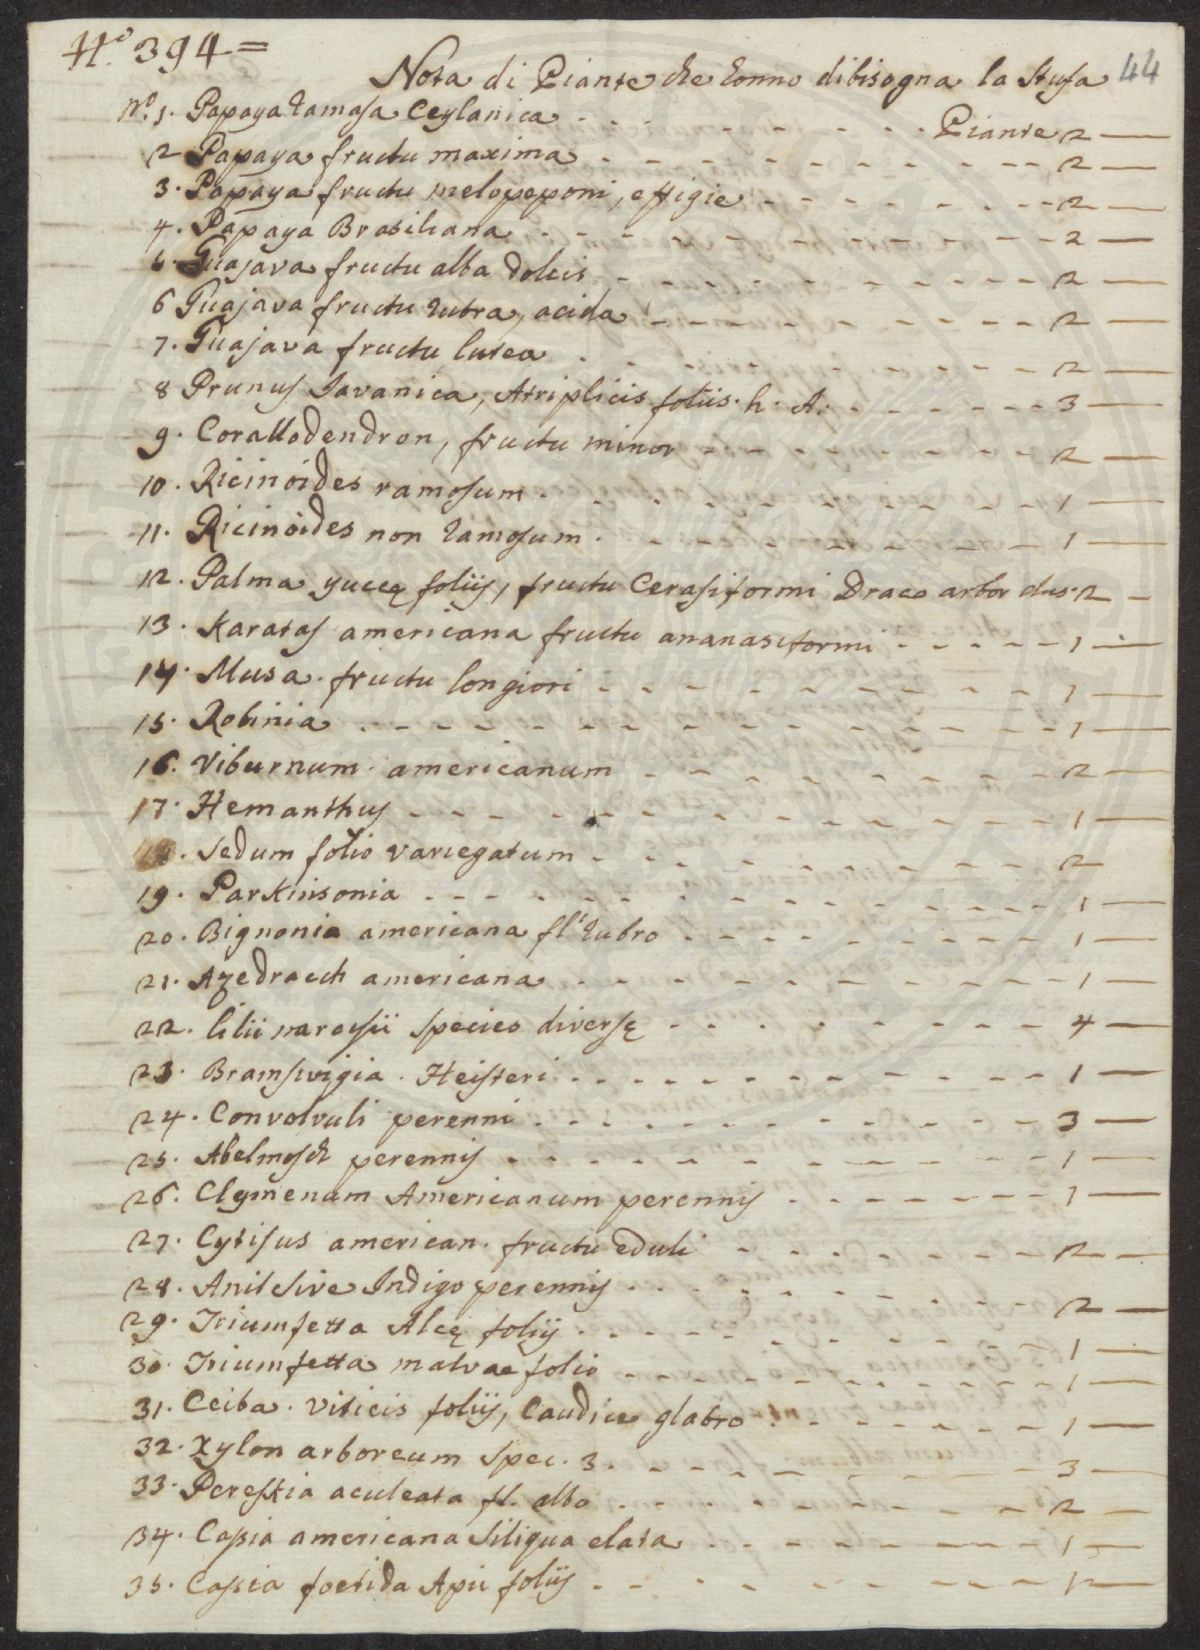 N.o 394=
44
Nota di Piante che honno dibisogna la Stufa
No. 1. Papaya ramosa Ceylanica - - - Piante 2 —
2 Papaya fructu maxima - - - 2 —
3. Papaya fructu melopeponi, effigie - - - 2 —
4. Papaya Brasiliana - - - 2 —
5. Guajava fructu alba dolcis - - - 2 —
6 Guajava fructu rubra, acida - - - 2 —
7. Guajava fructu lutea - - - 2 —
8 Prunus Javanica, Atriplicis foliis. h. A. - - - 3 —
9. Corallodendron, fructu minor - - - 2 —
10. Ricinoides ramosum - - - 1 —
11. Ricinoides non ramosum - - - 1 —
12. Palma yuccę foliis, fructu Cerasiformi Draco arbor clus. 2 —
13. Karatas americana fructu ananasiformi - - - 1 —
14. Musa. fructu longiori - - - 1 —
15. Robinia - - - 1 —
16. Viburnum. americanum - - - 2 —
17. Hemanthus - - - 1 —
18. Sedum folio variegatum - - - 2
19. Parkinsonia - - - 1 —
20. Bignonia americana fl. rubro - - - 1 —
21. Azedrach americana - - - 1 —
22. Lilii narcissii species diversę - - - 4 —
23. Bramsvigia. Heisteri - - - 1 —
24. Convolvuli perenni - - - 3 —
25. Abelmosch perennis - - - 1 —
26. Clymenum Americanum perennis - - - 1 —
27. Cytisus american. fructu eduli - - - 2 —
28. Anil sive Indigo perennis - - - 2 —
29. Triumfetta Alcę foliis - - - 1 —
30. Triumfetta malvae folio - - - 1 —
31. Ceiba. viticis foliis, Caudice glabro - - - 1 —
32. Xylon arboreum spec. 3. - - - 3 —
33. Pereskia aculeata fl. albo - - - 2 —
34. Cassia americana Siliqua elata - - - 1 —
35. Cassia foetida Apii foliis - - - 1 —